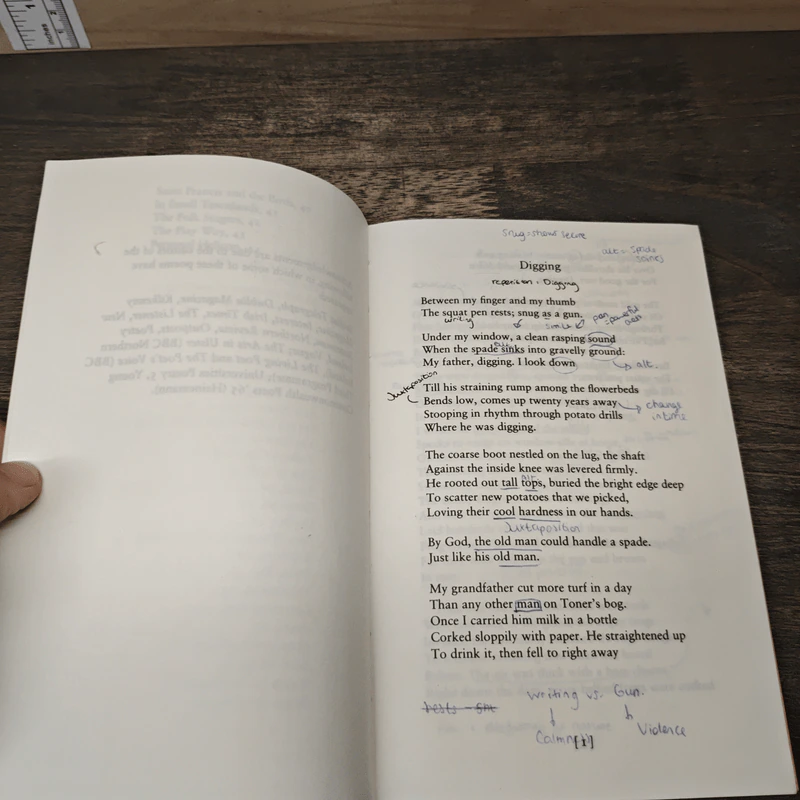 1
2
inches
snug = shows secure
alt = spade
sinks
Digging
repetition: Digging
Between my finger and my thumb
The squat pen rests; snug as a gun.
simile
pen
Under my window, a clean rasping sound
When the spade sinks into gravelly ground:
My father, digging. I look down
alt.
Juxtaposition
Till his straining rump among the flowerbeds
Bends low, comes up twenty years away
change
in time
Stooping in rhythm through potato drills
Where he was digging.
The coarse boot nestled on the lug, the shaft
Against the inside knee was levered firmly.
alt
He rooted out tall tops, buried the bright edge deep
To scatter new potatoes that we picked,
Loving their cool hardness in our hands.
Juxtaposition
By God, the old man could handle a spade.
Just like his old man.
My grandfather cut more turf in a day
Than any other man on Toner's bog.
Once I carried him milk in a bottle
Corked sloppily with paper. He straightened up
To drink it, then fell to right away
writing vs. Gun.
rests
Violence
[1]